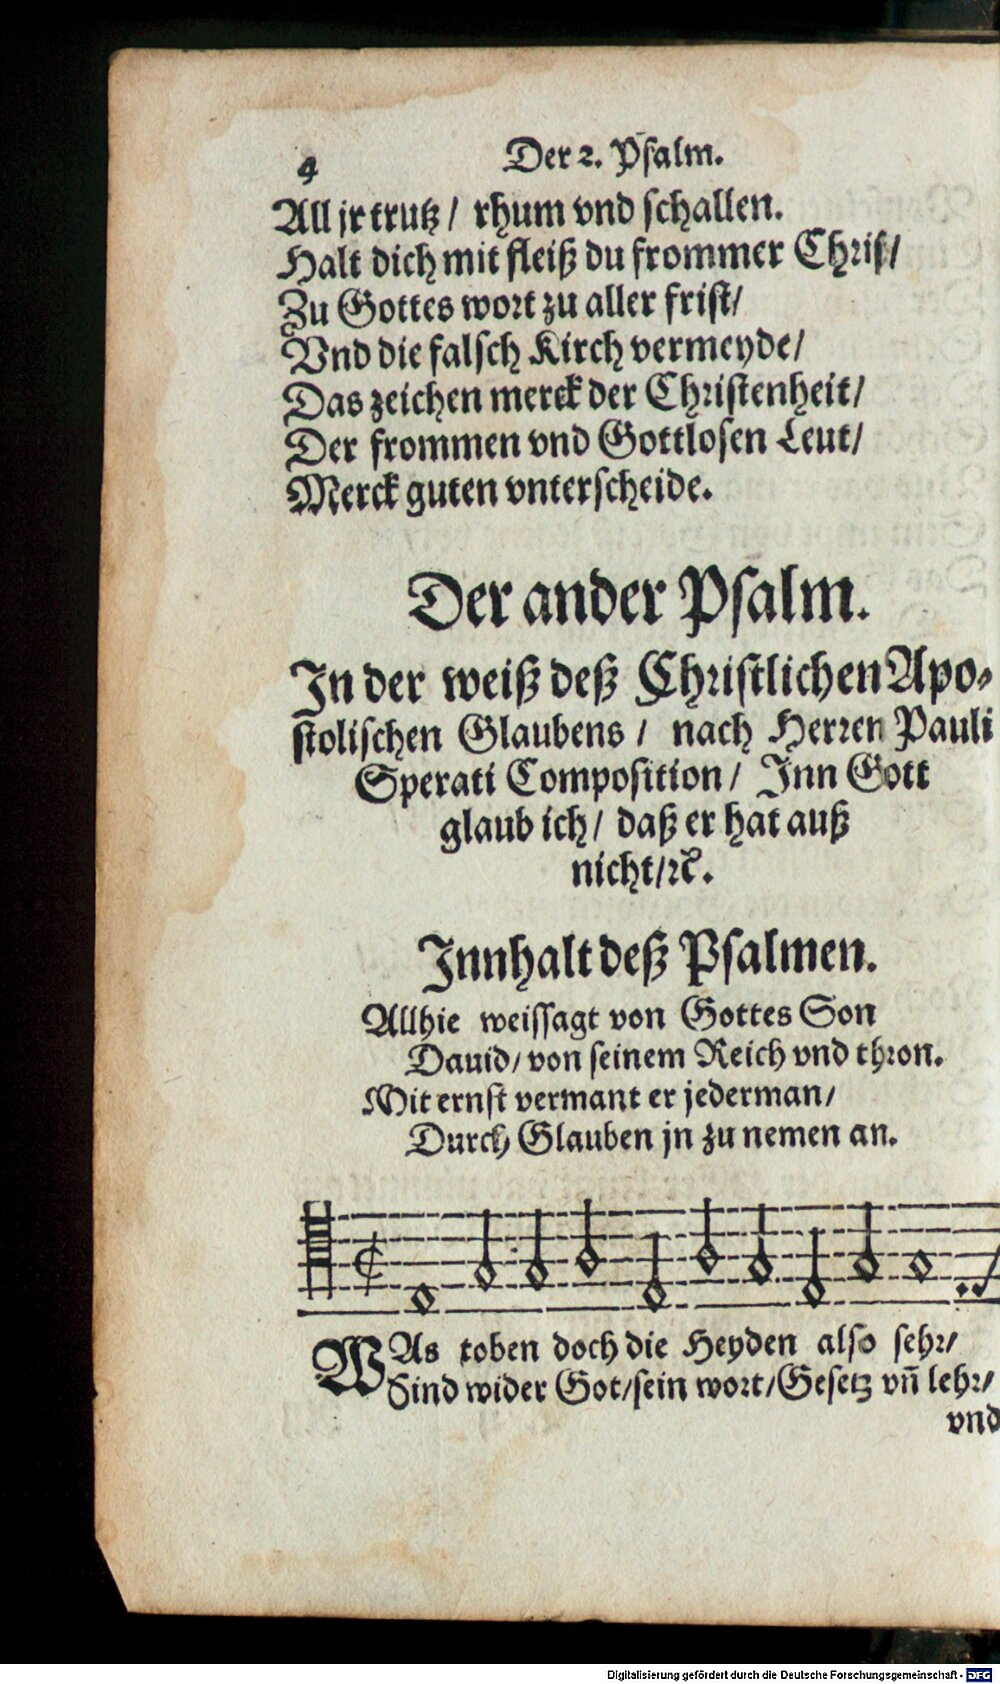 4 Der 2. Psalm.
All jr trutz / rhum vnd schallen.
Halt dich mit fleiß du frommer Christ /
Zu Gottes wort zu aller frist /
Vnd die falsch Kirch vermeyde /
Das zeichen merck der Christenheit /
Der frommen vnd Gottlosen Leut /
Merck guten vnterscheide.
Der ander Psalm.
In der weiß deß Christlichen Apo-
stolischen Glaubens / nach Herren Pauli
Sperati Composition / Inn Gott
glaub ich / daß er hat auß
nicht / ꝛc.
Innhalt deß Psalmen.
Allhie weissagt von Gottes Son
Dauid / von seinem Reich vnd thron.
Mit ernst vermant er jederman /
Durch Glauben jn zu nemen an.
WAs toben doch die Heyden also sehr /
Sind wider Got / sein wort / Gesetz vñ lehr /
vnd
Digitalisierung gefördert durch die Deutsche Forschungsgemeinschaft - DFG